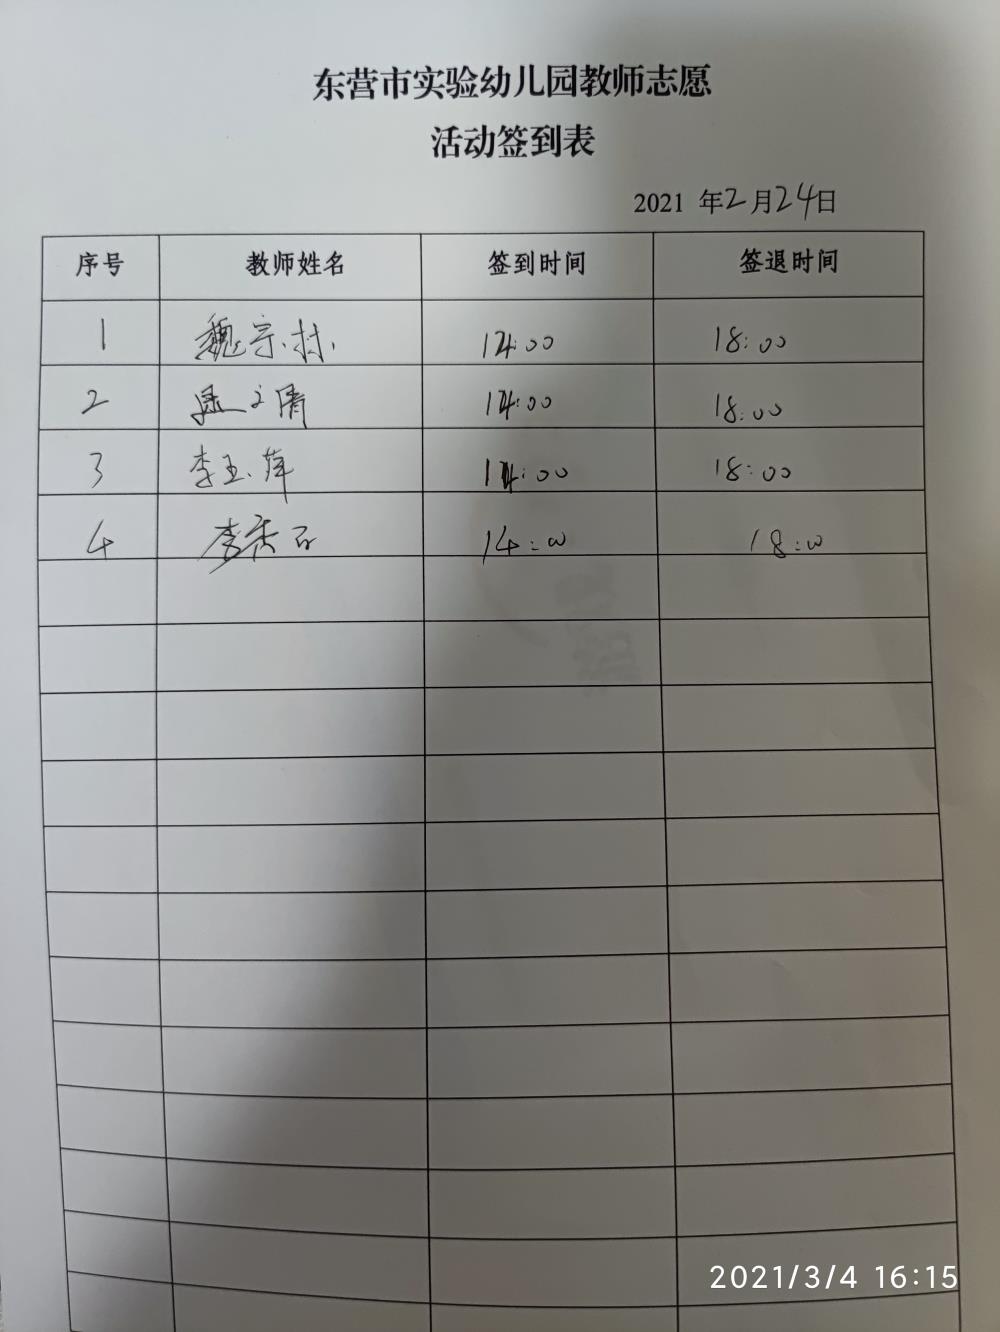 东营市实验幼儿园教师志愿
活动签到表
2021 年2月24日
序号 教师姓名 签到时间 签退时间
1 魏宗村 14:00 18:00
2 文清 14:00 18:00
3 李玉萍 14:00 18:00
4 李秀 14:00 18:00
2021/3/4 16:15